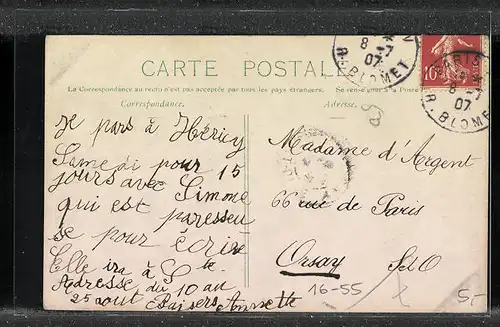 CARTE POSTALE
La Correspondance au recto n'est pas acceptée par tous les pays étrangers. Se rens
Correspondance.
Adresse.
PARIS
8 -7
07
R. BLOMET
8 -7
07
R. BLOMET
10
Je pars à Héricy
Samedi pour 15
jours avec Simone
qui est paresseu
se pour écrire
Elle ira à
Adresse du 10 au
25 aout Baisers Annette
Madame d'Argent
66 rue de Paris
Orsay S et O
16-55
5,-